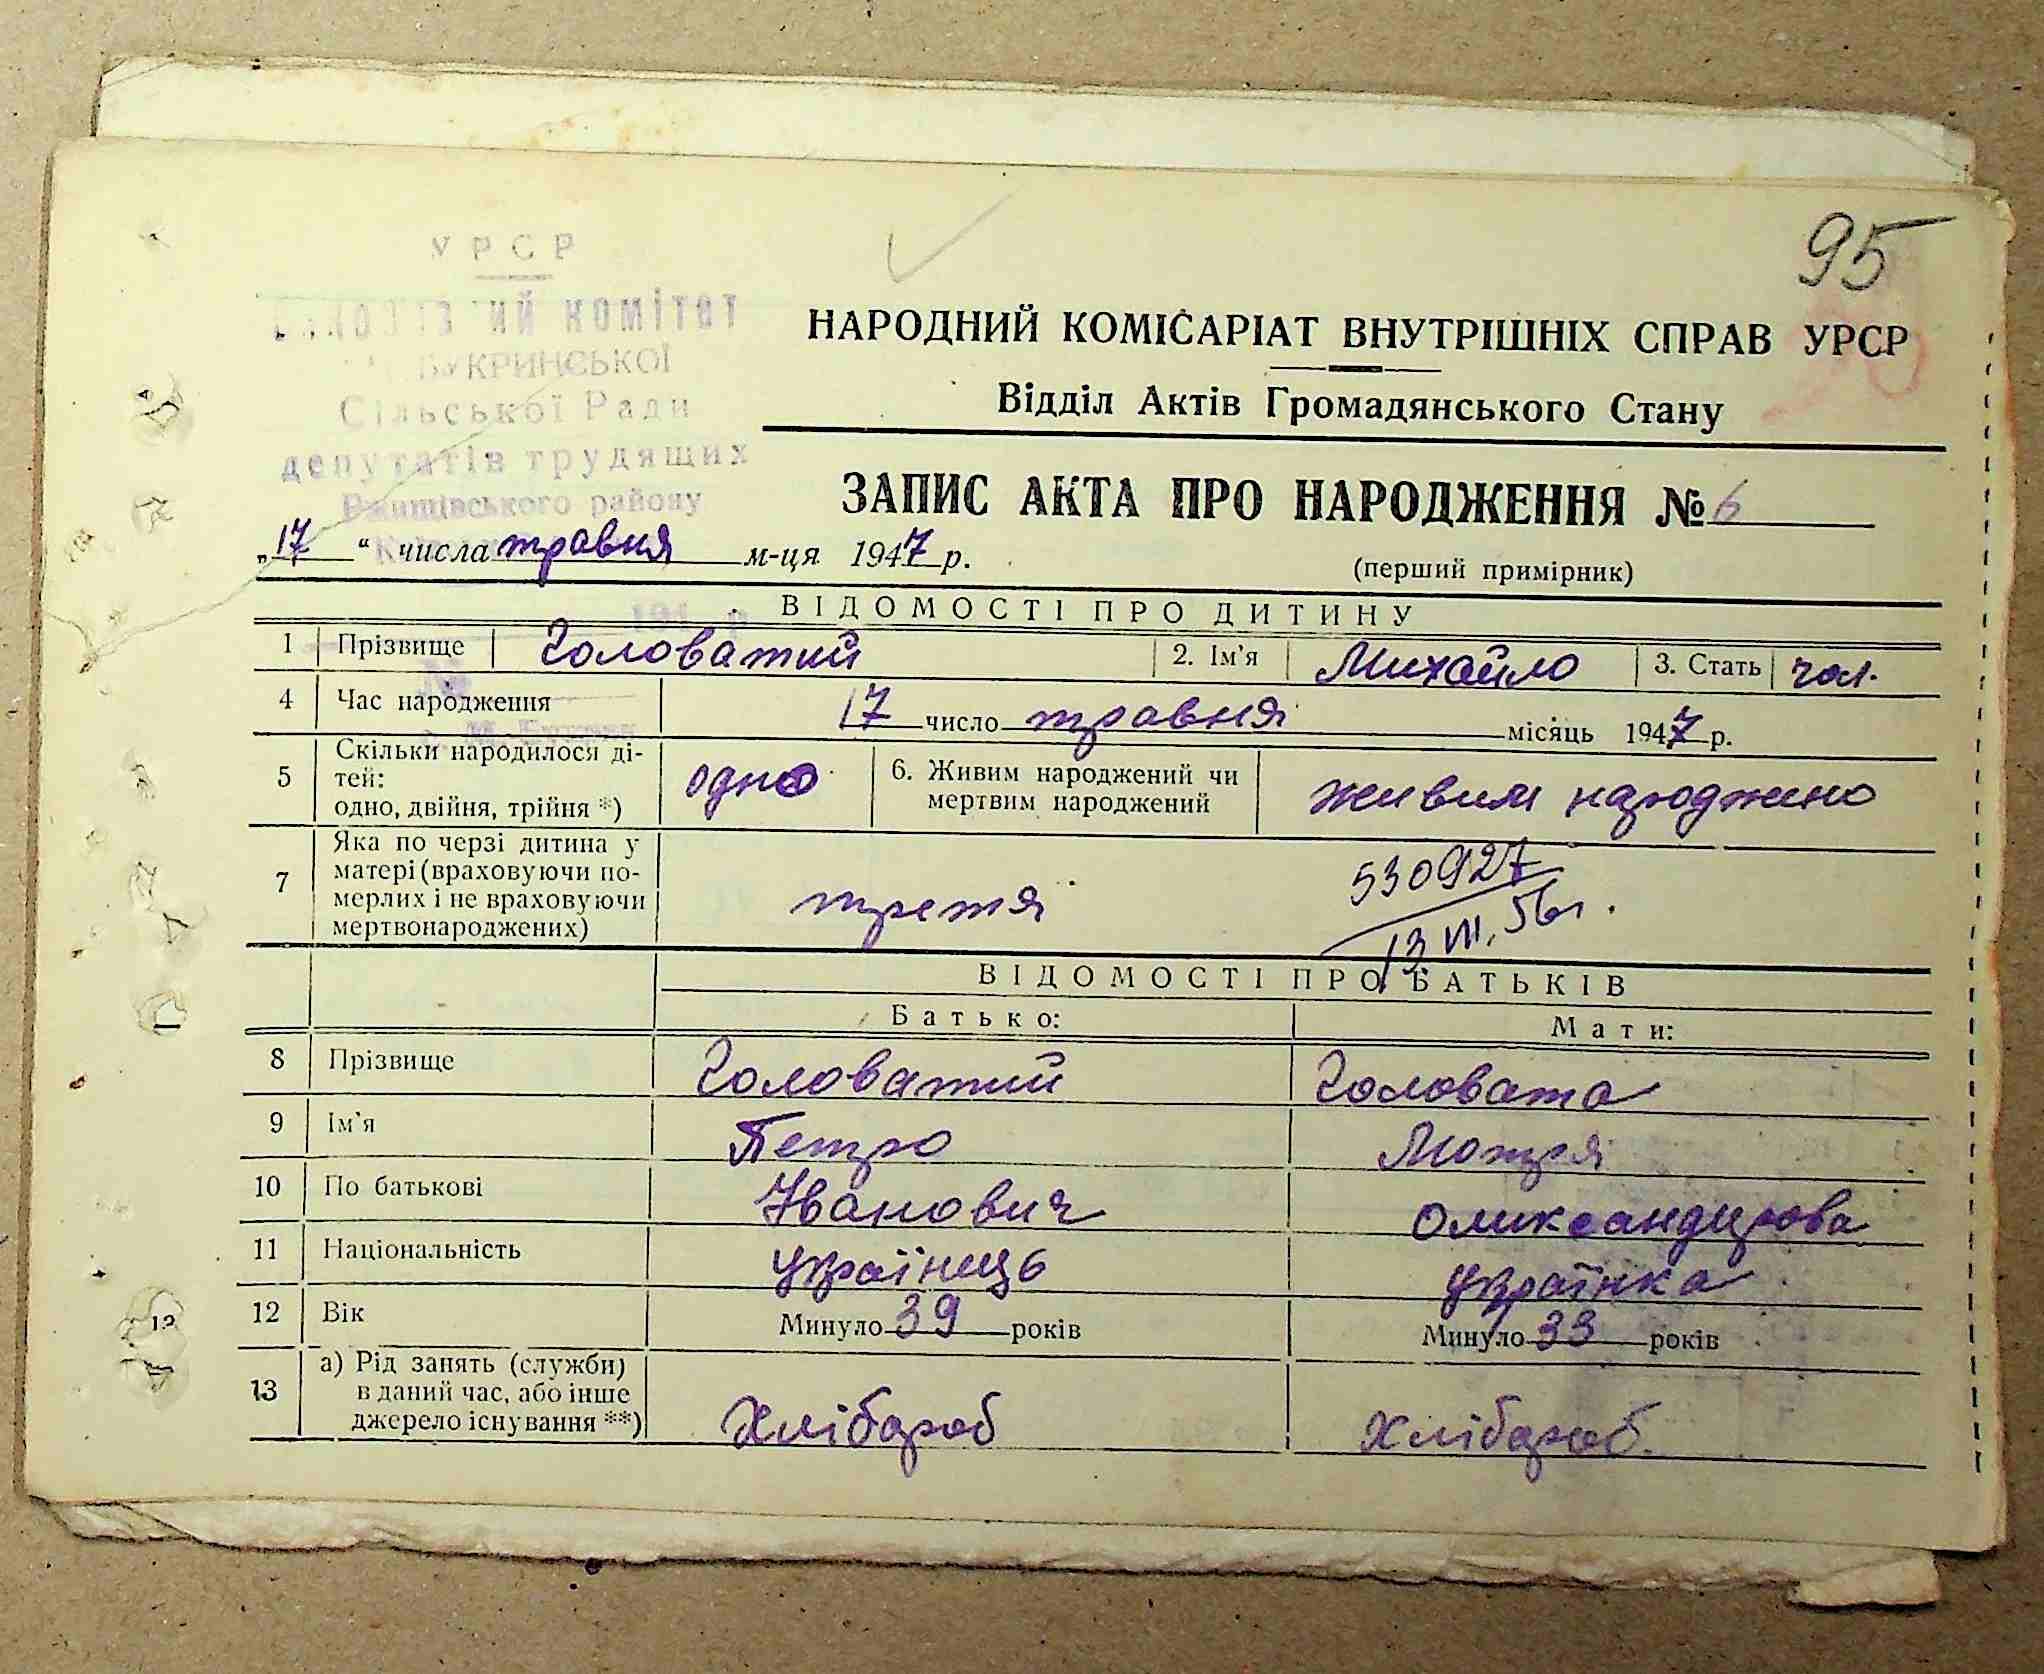 95
УРСР
комітет
БУКРИНСЬКОЇ
Сільської Ради
депутатів трудящих
Ржищівського району
НАРОДНИЙ КОМІСАРІАТ ВНУТРІШНІХ СПРАВ УРСР
Відділ Актів Громадянського Стану
ЗАПИС АКТА ПРО НАРОДЖЕННЯ № 6
„17“ числа травня м-ця 1947 р.
(перший примірник)
ВІДОМОСТІ ПРО ДИТИНУ
1 Прізвище Головатий 2. Ім'я Михайло 3. Стать чол.
4 Час народження 17 число травня місяць 1947 р.
5 Скільки народилося ді-
тей:
одно, двійня, трійня *) одно 6. Живим народжений чи
мертвим народжений живим народжено
7 Яка по черзі дитина у
матері (враховуючи по-
мерлих і не враховуючи
мертвонароджених) третя
530927
13 VIII, 56г.
ВІДОМОСТІ ПРО БАТЬКІВ
Батько: Мати:
8 Прізвище Головатий Головата
9 Ім'я Петро Мотря
10 По батькові Іванович Олександрова
11 Національність українець українка
12 Вік Минуло 39 років Минуло 33 років
13 а) Рід занять (служби)
в даний час, або інше
джерело існування **) Хлібароб Хлібароб.